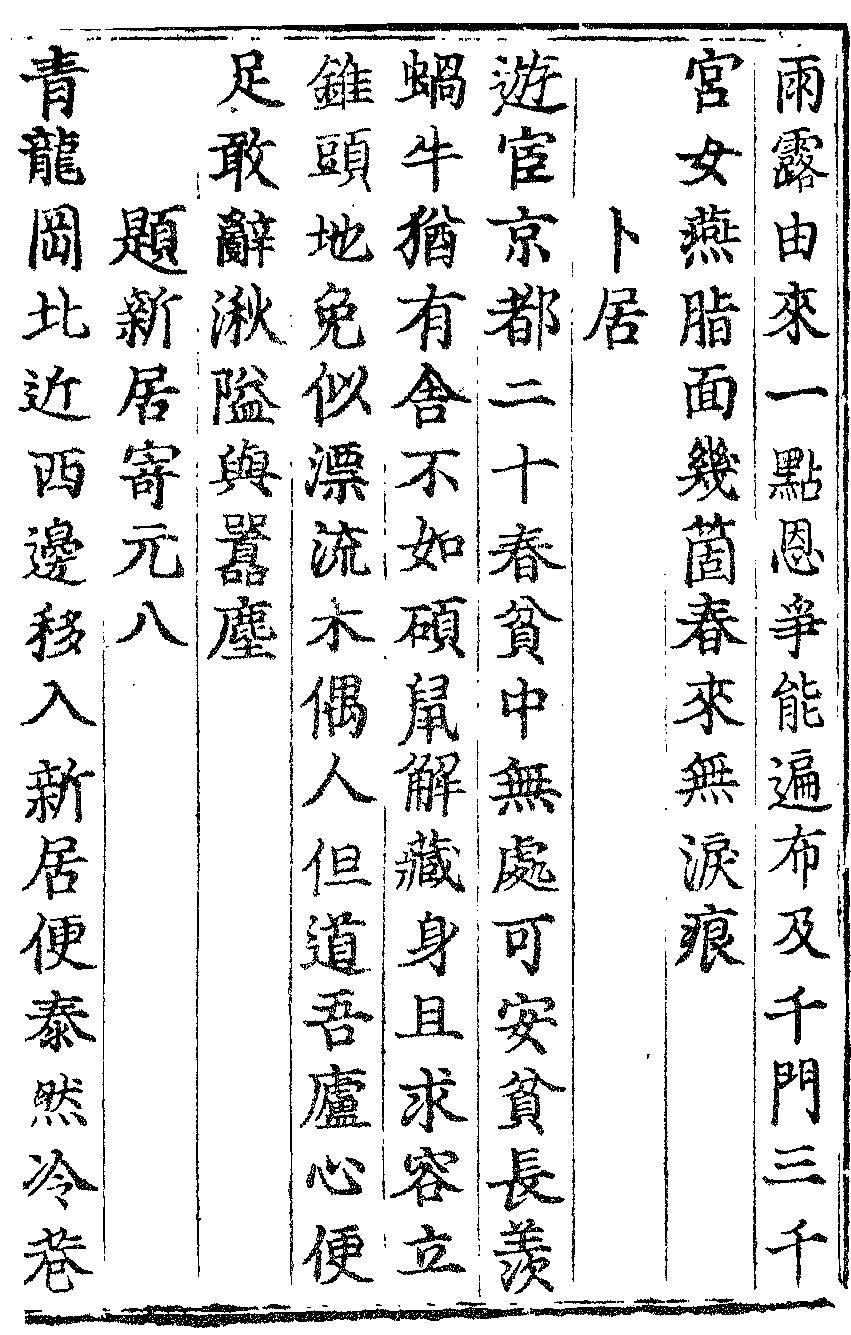 雨露由來一點恩爭能遍布及千門三千
宮女燕脂面幾箇春來無淚痕
卜居
遊宦京都二十春貧中無處可安貧長羨
蝸牛猶有舍不如碩鼠解藏身且求容立
錐頭地免似漂流木偶人但道吾廬心便
足敢辭湫隘與囂塵
題新居寄元八
青龍岡北近西邊移入新居便泰然冷巷